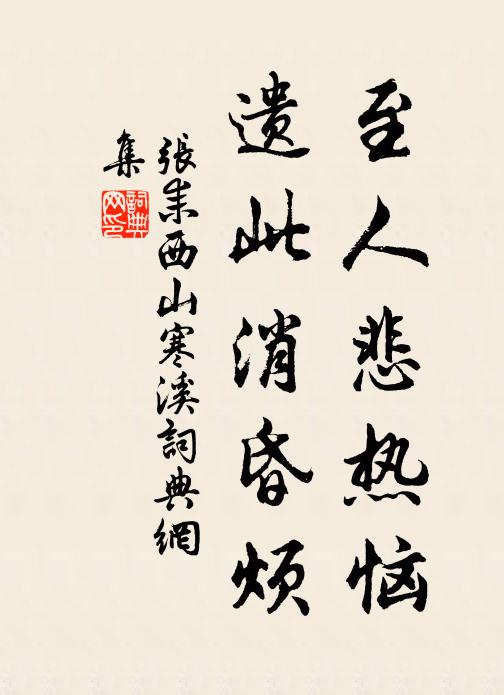 至人悲热恼
遗此消昏烦
張耒西山寒溪詞典網
集
詞典
网印